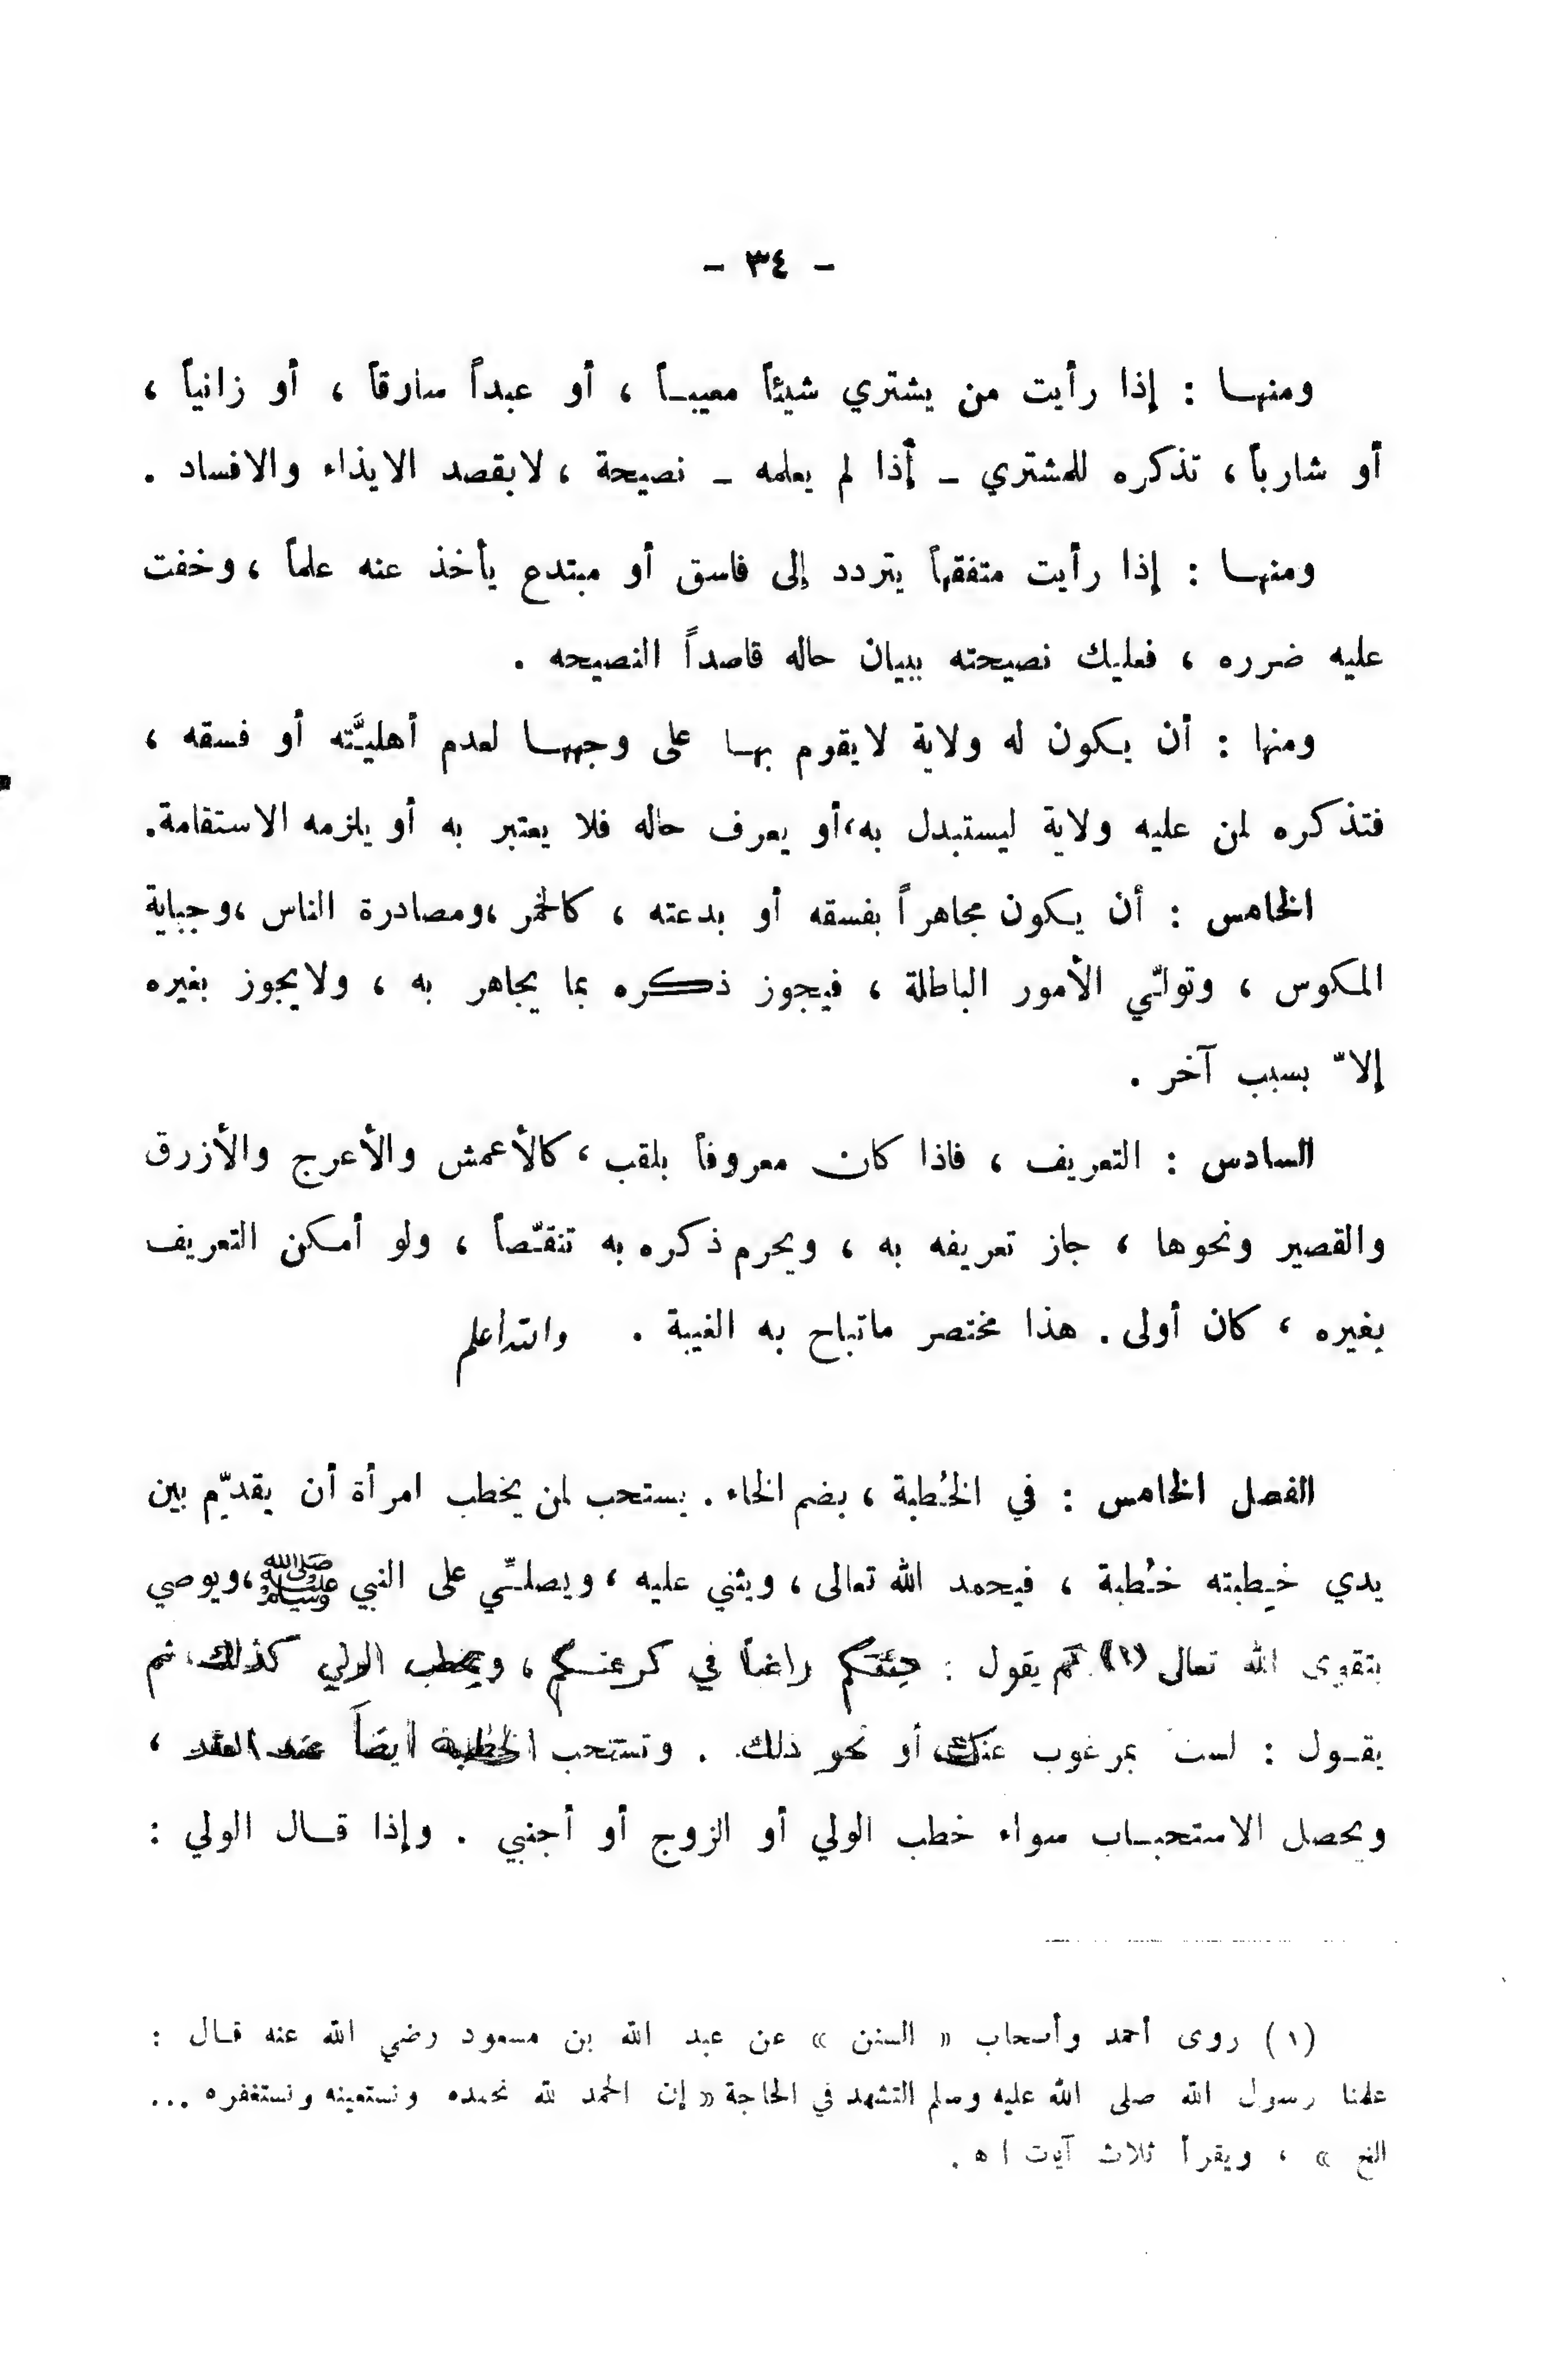 - ٣٤ -
ومنهـا : إذا رأيت من يشتري شيئاً معيبـاً ، أو عبداً سارقاً ، أو زانياً ،
أو شارباً ، تذكره للمشتري - إذا لم يعلمه - نصيحة ، لابقصد الايذاء والافساد .
ومنهـا : إذا رأيت متفقهاً يتردد إلى فاسق أو مبتدع يأخذ عنه علماً ، وخفت
عليه ضرره ، فعليك نصيحته ببيان حاله قاصداً النصيحه .
ومنها : أن يكون له ولاية لايقوم بهـا على وجههـا لعدم أهليَّته أو فسقه ،
فتذكره لمن عليه ولاية ليستبدل به،أو يعرف حاله فلا يعتبر به أو يلزمه الاستقامة.
الخامس : أن يكون مجاهراً بفسقه أو بدعته ، كالخمر ،ومصادرة الناس ،وجباية
المكوس ، وتولّي الأمور الباطلة ، فيجوز ذكره بما يجاهر به ، ولايجوز بغيره
إلاّ بسبب آخر .
السادس : التعريف ، فاذا كان معروفاً بلقب ، كالأعمش والأعرج والأزرق
والقصير ونحوها ، جاز تعريفه به ، ويحرم ذكره به تنقّصاً ، ولو أمكن التعريف
بغيره ، كان أولى . هذا مختصر ماتباح به الغيبة . والله أعلم
الفصل الخامس : في الخُطبة ، بضم الخاء . يستحب لمن يخطب امرأة أن يقدّم بين
يدي خِطبته خُطبة ، فيحمد الله تعالى ، ويثني عليه ، ويصلّي على النبي ﷺ ،ويوصي
بتقوى الله تعالى (١) ثم يقول : جئتكم راغباً في كريمتكم ، ويخطب الولي كذلك، ثم
يقـول : لست بمرغوب عنك، أو نحو ذلك . وتستحب الخطبة أيضاً عند العقد ،
ويحصل الاستحبـاب سواء خطب الولي أو الزوج أو أجنبي . وإذا قـال الولي :
(١) روى أحمد وأصحاب « السنن » عن عبد الله بن مسعود رضي الله عنه قـال :
علمنا رسول الله صلى الله عليه وسلم التشهد في الحاجة « إن الحمد لله نحمده ونستعينه ونستغفره ...
الخ » ، ويقرأ ثلاث آيات ا ه .